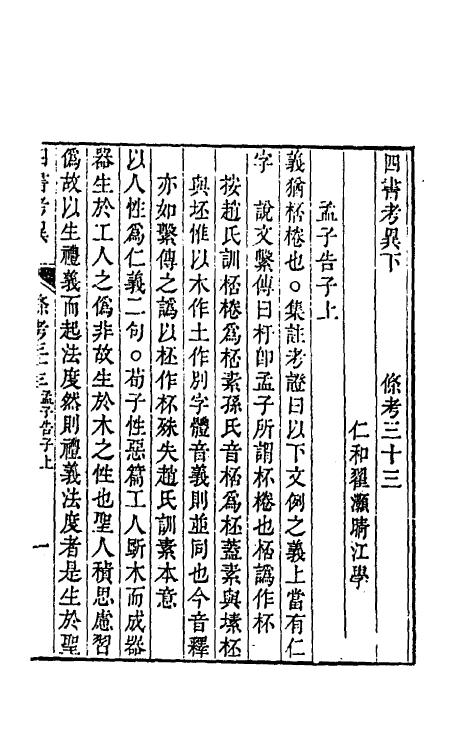 四書考異下　　　條考三十三
仁和翟灝晴江學
孟子告子上
義猶桮棬也○集註考證曰以下文例之義上當有仁
字　說文繫傳曰杅卽孟子所謂杯棬也桮譌作杯
按趙氏訓桮棬爲桮素孫氏音桮爲柸蓋素與塐柸
與坯惟以木作土作別字體音義則並同也今音釋
亦如繫傳之譌以柸作杯殊失趙氏訓素本意
以人性爲仁義二句○荀子性惡篇工人斲木而成器
器生於工人之僞非故生於木之性也聖人積思慮習
僞故以生禮義而起法度然則禮義法度者是生於聖
四書考異　條考三十三　孟子告子上　一